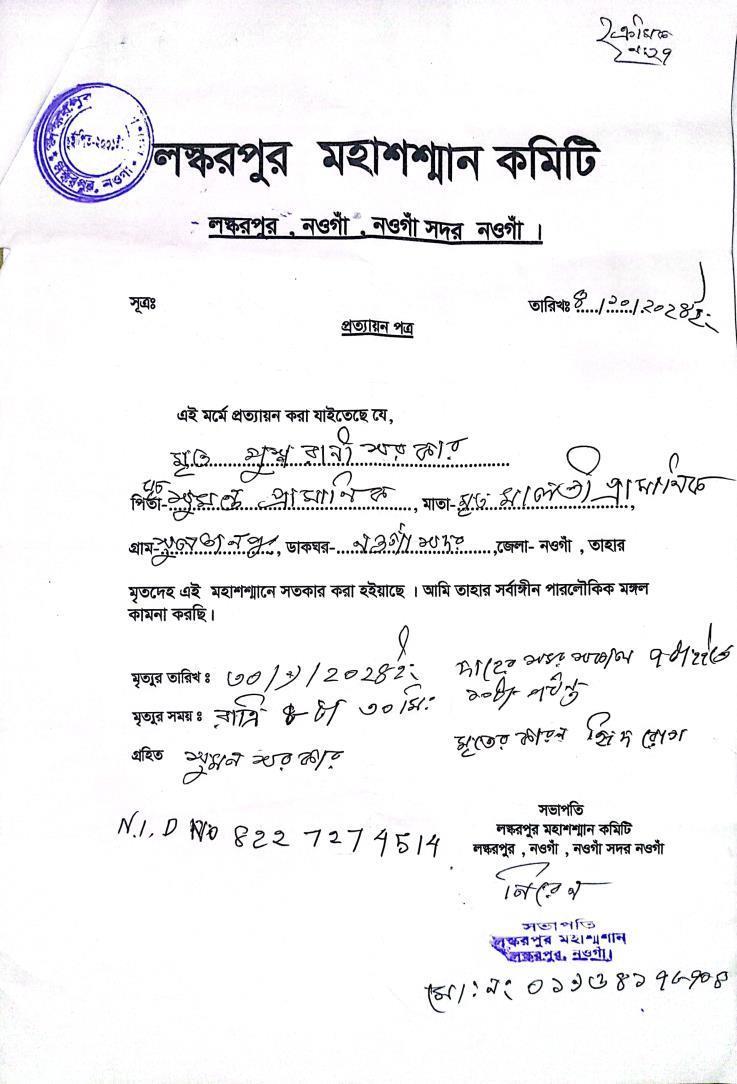 ক্রমিক
নং ২৭
লস্করপুর মহাশশ্মান কমিটি
লস্করপুর , নওগাঁ , নওগাঁ সদর নওগাঁ ।
সূত্রঃ
তারিখঃ ৪/১০/২০২৪ইং
প্রত্যায়ন পত্র
এই মর্মে প্রত্যায়ন করা যাইতেছে যে,
মৃত পুষ্প রানী সরকার
পিতা- মৃত সুমন্ত প্রামানিক, মাতা- মৃত মালতী প্রামানিক
গ্রাম- সুলতানপুর, ডাকঘর- নওগাঁ সদর, জেলা- নওগাঁ , তাহার
মৃতদেহ এই মহাশশ্মানে সতকার করা হইয়াছে । আমি তাহার সর্বাঙ্গীন পারলৌকিক মঙ্গল
কামনা করছি।
মৃত্যুর তারিখ ঃ ৩০/৯/২০২৪ইং
দাহের সময় সকাল ৭টা হইতে
১০টা পর্যন্ত
মৃত্যুর সময় ঃ রাত্রি ৪ টা ৩০ মিঃ
মৃতের কারন হৃিদ রোগ
গ্রহিত সুমন সরকার
N.I.D No 822 727 4514
সভাপতি
লস্করপুর মহাশশ্মান কমিটি
লস্করপুর , নওগাঁ , নওগাঁ সদর নওগাঁ
নিরেন
সভাপতি
লস্করপুর মহাশ্মশান
লস্করপুর, নওগাঁ।
মো: নং